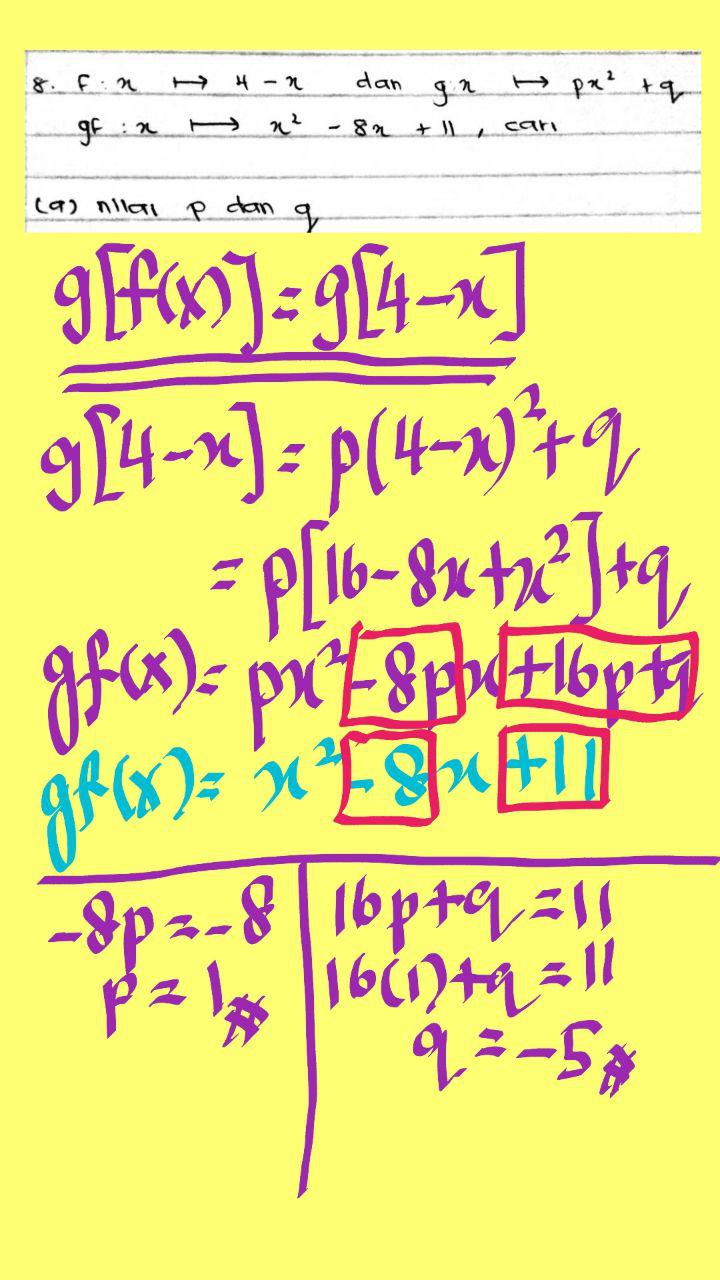 8. f : x ↦ 4 - x dan g:x ↦ px² + q
gf : x ↦ x² - 8x + 11 , cari
(a) nilai p dan q
g[f(x)] = g[4-x]
g[4-x] = p(4-x)² + q
= p[16-8x+x²]+q
gf(x) = px² -8px +16p+q
gf(x) = x² -8x +11
-8p = -8
p = 1 #
16p+q = 11
16(1)+q = 11
q = -5 #